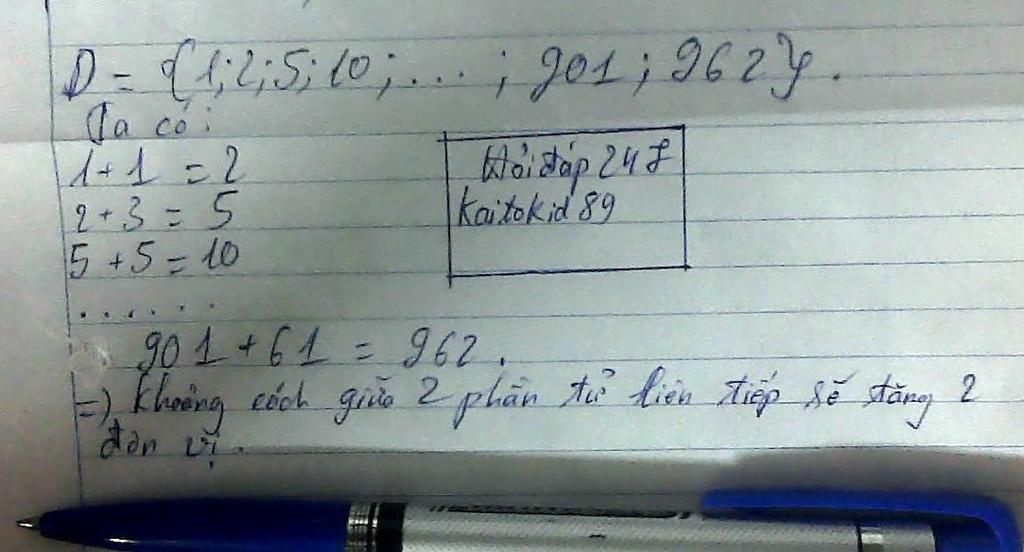 D = {1;2;5;10;...;901;962}.
Ta có:
1+1 = 2
2+3 = 5
5+5 = 10
......
901+61 = 962.
=) Khoảng cách giữa 2 phần tử liên tiếp sẽ tăng 2
đơn vị.
Hỏi đáp 247
Kaitokid 89